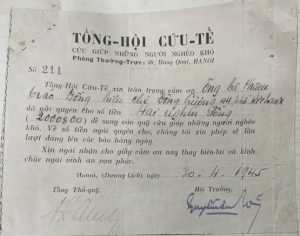 TỔNG-HỘI CỨU-TẾ
CỨU GIÚP NHỮNG NGƯỜI NGHÈO KHỔ
Phòng Thường-Trực: 30, Hàng Quạt, HANOI
Số 211
Tổng-Hội Cứu-Tế xin trân trọng cảm ơn Ông bà Phạm
đã gửi quyên cho số tiền Hai nghìn đồng
(2000$00) để sung vào quỹ cứu giúp những người nghèo
khổ. Về số tiền ngài quyên cho, chúng tôi xin phép sẽ lần
lượt đăng lên các báo hàng ngày
Xin ngài nhận cho giấy cảm ơn này thay biên-lai và kính
chúc ngài vinh an vạn phúc.
Hanoi, (Dương-Lịch) ngày 30-4-1945
Tổng Thủ-quỹ,
Hội Trưởng,